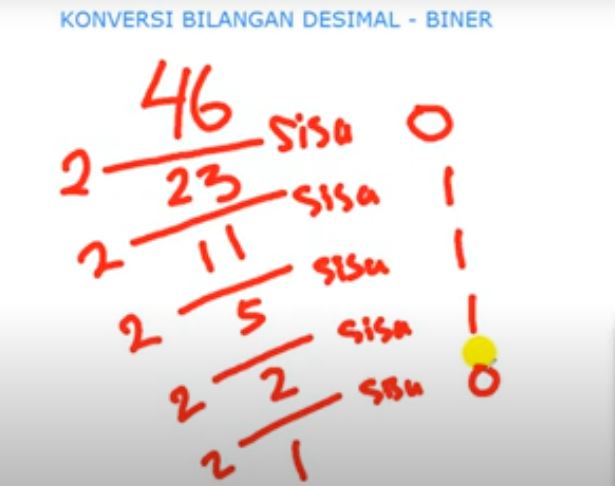 KONVERSI BILANGAN DESIMAL - BINER
46
2 sisa 0
23
2 sisa 1
11
2 sisa 1
5
2 sisa 1
2
2 sisa 0
1